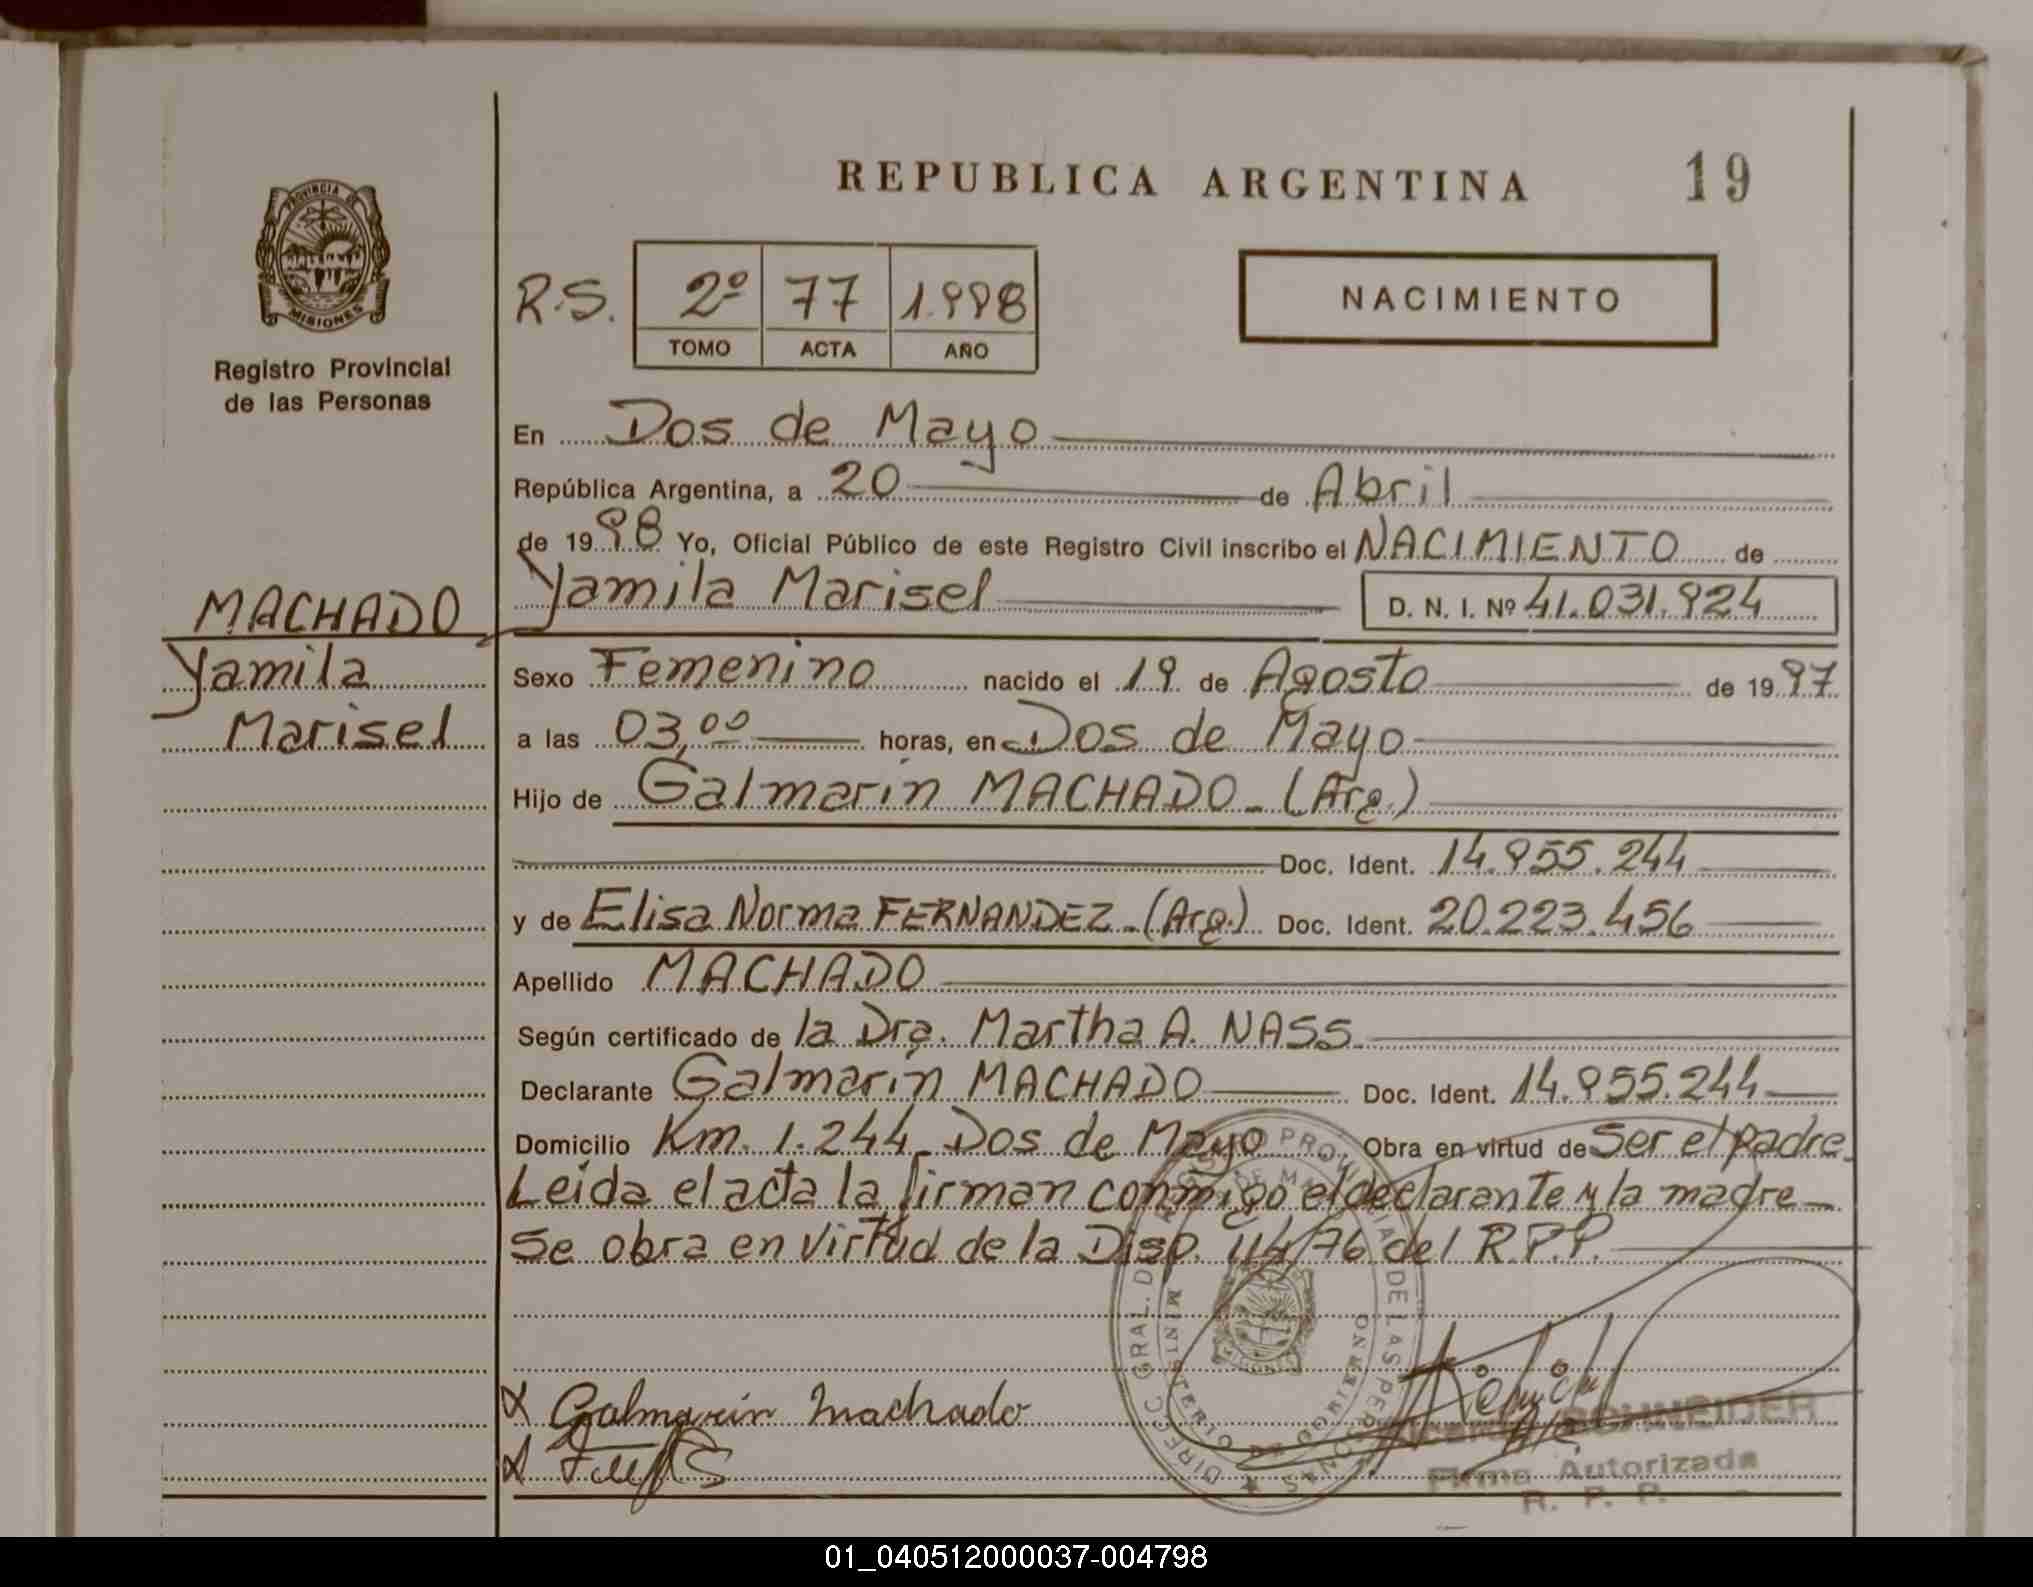 REPUBLICA ARGENTINA 19
PROVINCIA DE
MISIONES
Registro Provincial
de las Personas
R.S. 2º 77 1.998
TOMO ACTA AÑO
NACIMIENTO
En Dos de Mayo
República Argentina, a 20 de Abril
de 1998 Yo, Oficial Público de este Registro Civil inscribo el NACIMIENTO de
MACHADO
Yamila
Marisel
Yamila Marisel D. N. I. Nº 41.031.924
Sexo Femenino nacido el 19 de Agosto de 1997
a las 03,00 horas, en Dos de Mayo
Hijo de Galmarín MACHADO - (Arg.)
Doc. Ident. 14.955.244
y de Elisa Norma FERNANDEZ - (Arg.) Doc. Ident. 20.223.456
Apellido MACHADO
Según certificado de la Dra. Martha A. NASS
Declarante Galmarín MACHADO Doc. Ident. 14.955.244
Domicilio Km. 1.244 Dos de Mayo Obra en virtud de Ser el padre
Leída el acta la firman conmigo el declarante y la madre
Se obra en virtud de la Disp. 114/76 del R.P.P.
DIREC. GRAL. DEL REGISTRO PROVINCIAL DE LAS PERSONAS
MINISTERIO DE GOBIERNO
Galmarín Machado
SCHNEIDER
Firma Autorizada
R. P. P.
01_040512000037-004798